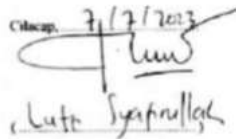 Cilacap, 7/7/2023
Lutfi Syaifullah